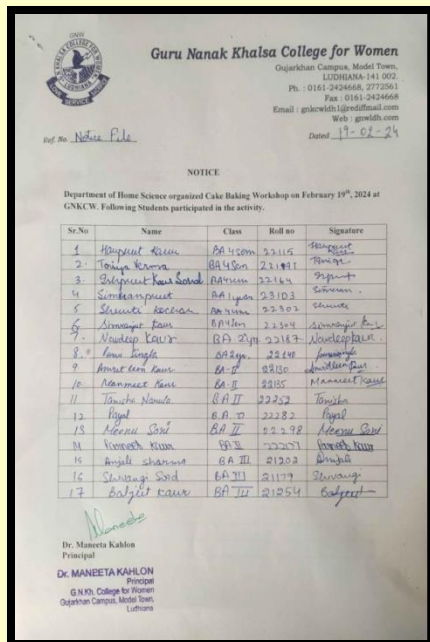 GNKW
KHALSA COLLEGE FOR WOMEN
LUDHIANA
Guru Nanak Khalsa College for Women
Gujarkhan Campus, Model Town,
LUDHIANA-141 002.
Ph. : 0161-2424668, 2773561
Fax : 0161-2424668
Email : gnkcwldh1@rediffmail.com
Web : gnwldh.com
Ref. No. Notice File
Dated 19-02-24
NOTICE
Department of Home Science organized Cake Baking Workshop on February 19th, 2024 at
GNKCW. Following Students participated in the activity.
Sr.No Name Class Roll no Signature
1 Harpreet Kaur BA 4 Sem 22115 Harpreet Kaur
2. BA 4 Sem
3. Kaur BA 4 sem 22164
4 Simranpreet BA 1 year 23103
5 Shruti BA 4 sem 22302 Shruti
6 Simranjit Kaur BA 4 Sem 22304 Simranjit Kaur
7. Navdeep Kaur BA 22187 Navdeep Kaur
8. Singla BA 2 yr. 22140
9 Kaur BA-II 22130
10 Manmeet Kaur BA-II 22135 Manmeet Kaur
11 Tanisha Narula BA II 22252 Tanisha
12 Payal B.A. II 22282 Payal
13 Meenu Soni BA II 22298 Meenu Soni
14 Parneet Kaur BA II 22207 Parneet Kaur
15 Anjali Sharma BA III 21202 Anjali
16 Shivangi Sood BA III 21179 Shivangi
17 Baljeet Kaur BA III 21254 Baljeet
Maneeta
Dr. Maneeta Kahlon
Principal
Dr. MANEETA KAHLON
Principal
G.N.Kh. College for Women
Gujarkhan Campus, Model Town,
Ludhiana